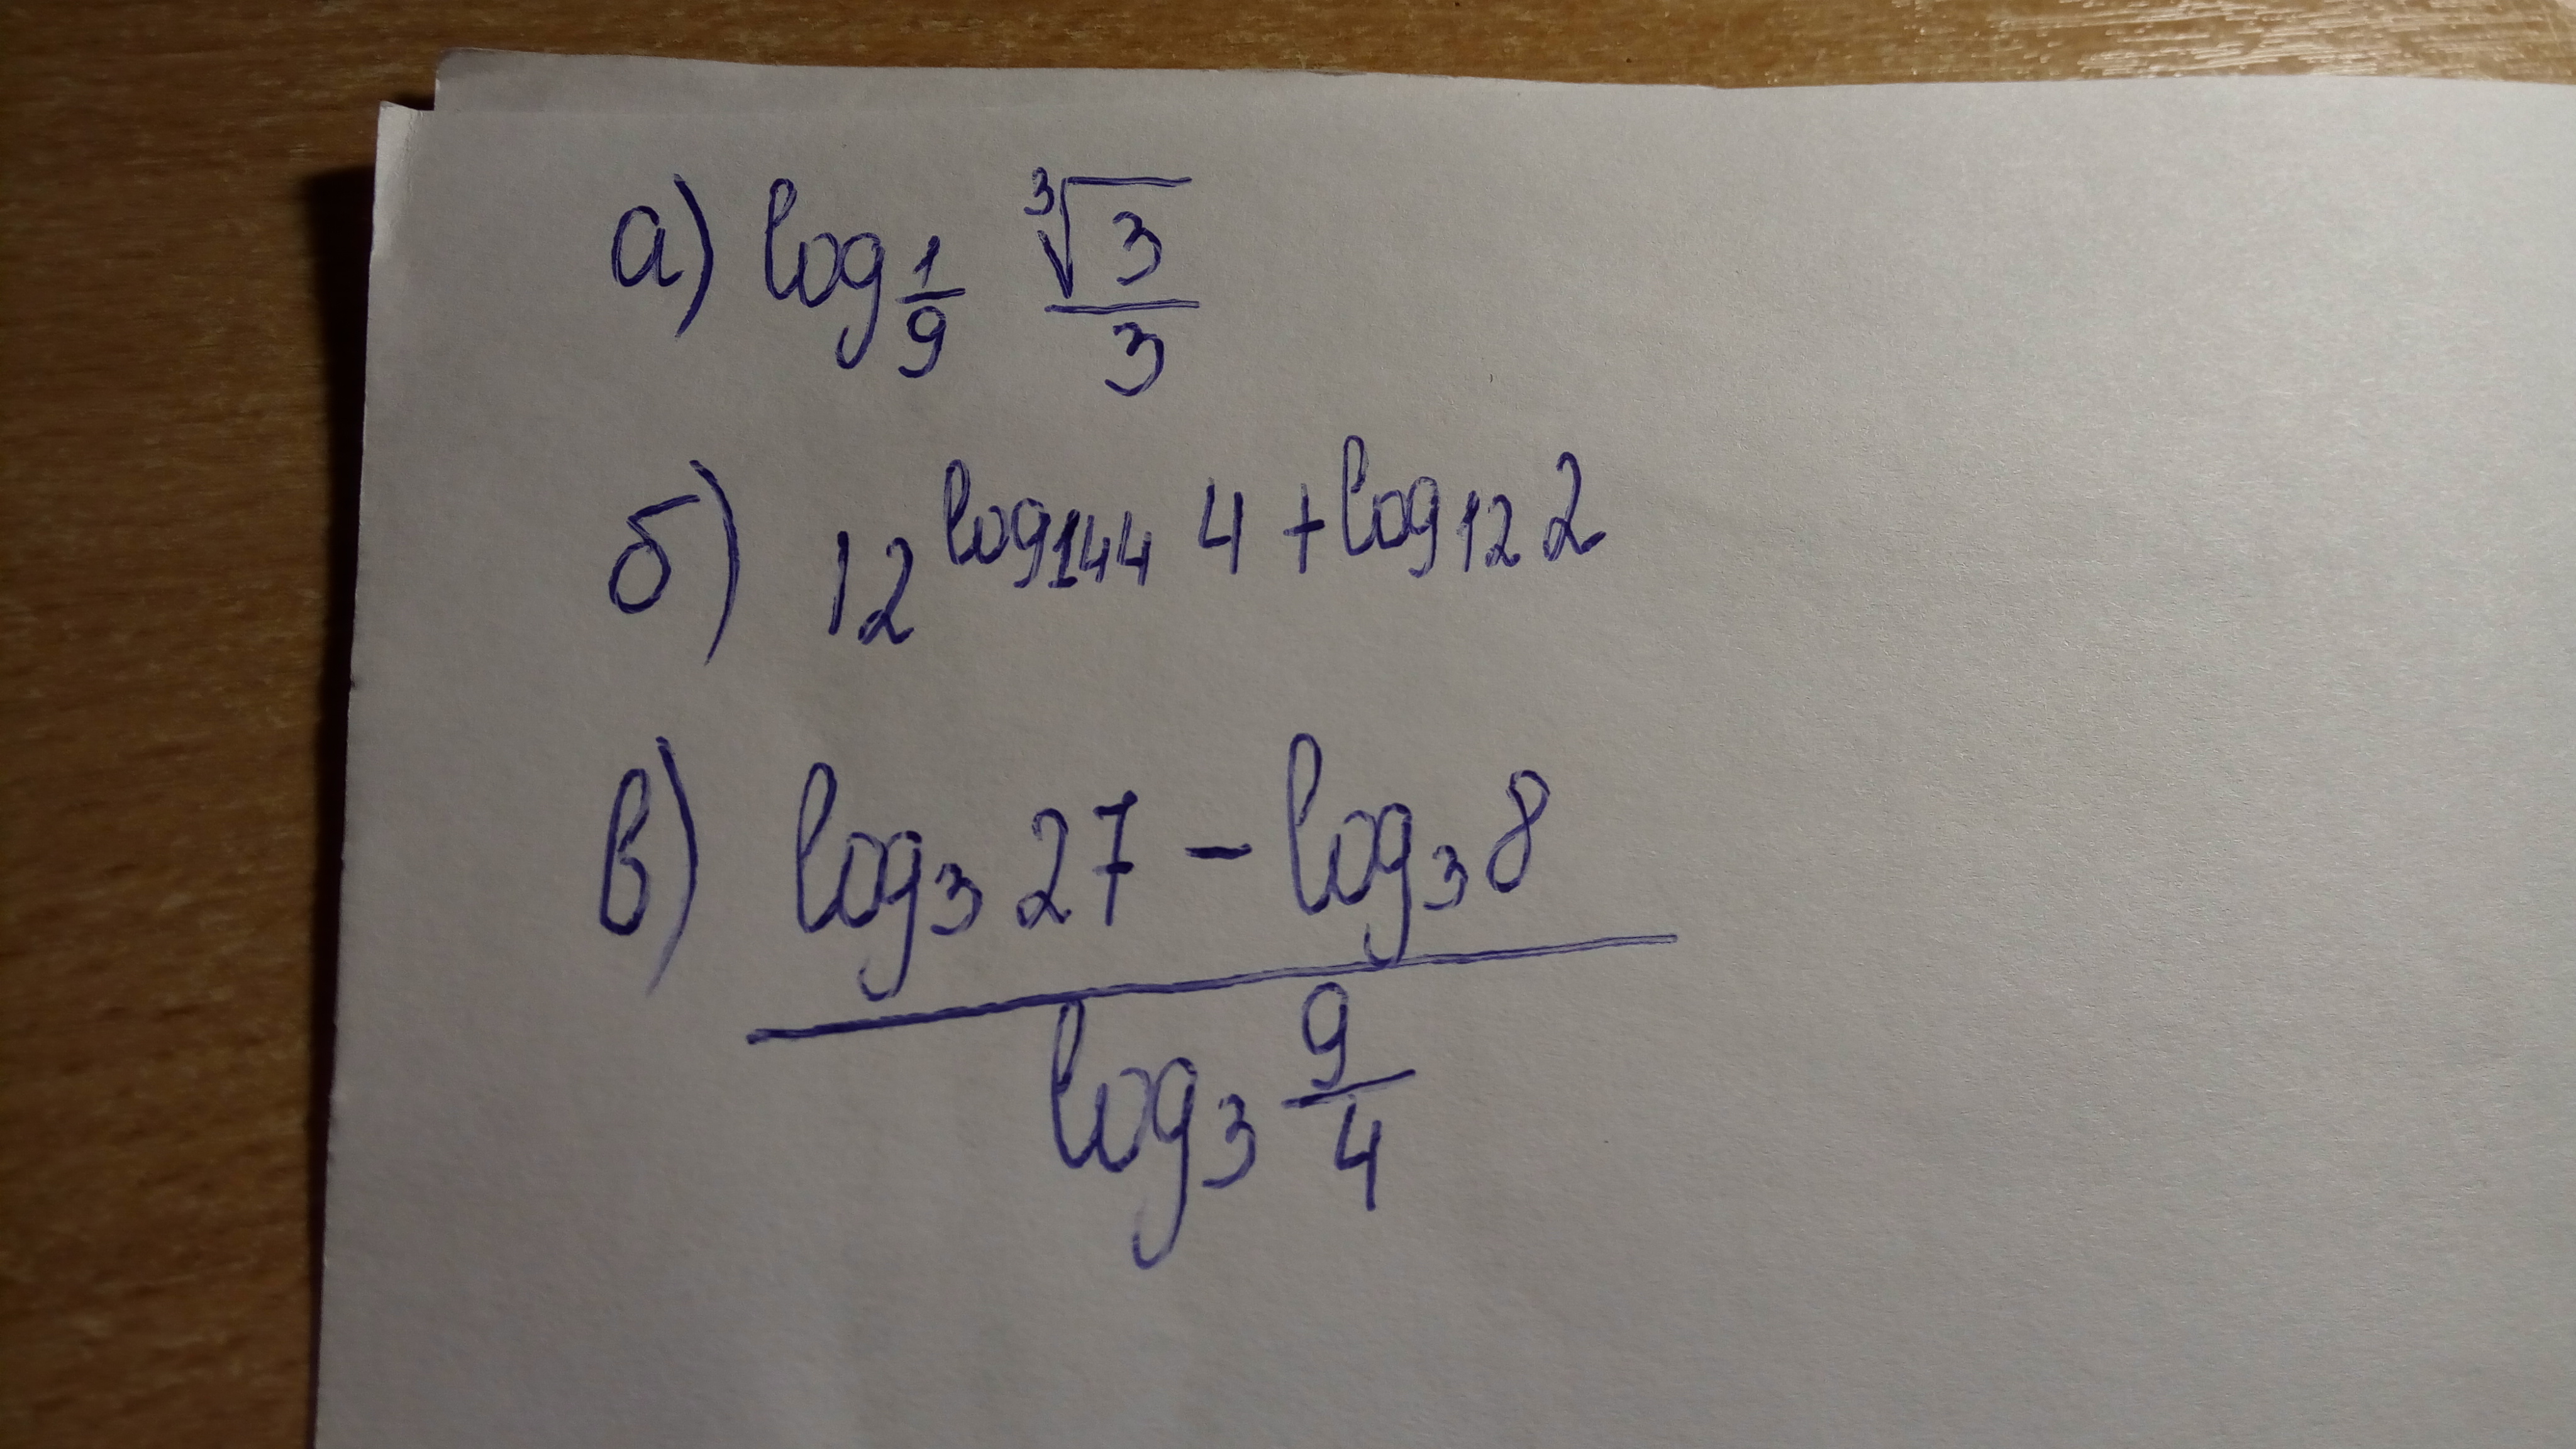 а) log_{1/9} ∛3/3
б) 12^{log_{144} 4 + log_{12} 2}
в) log₃ 27 - log₃ 8
log₃ 9/4